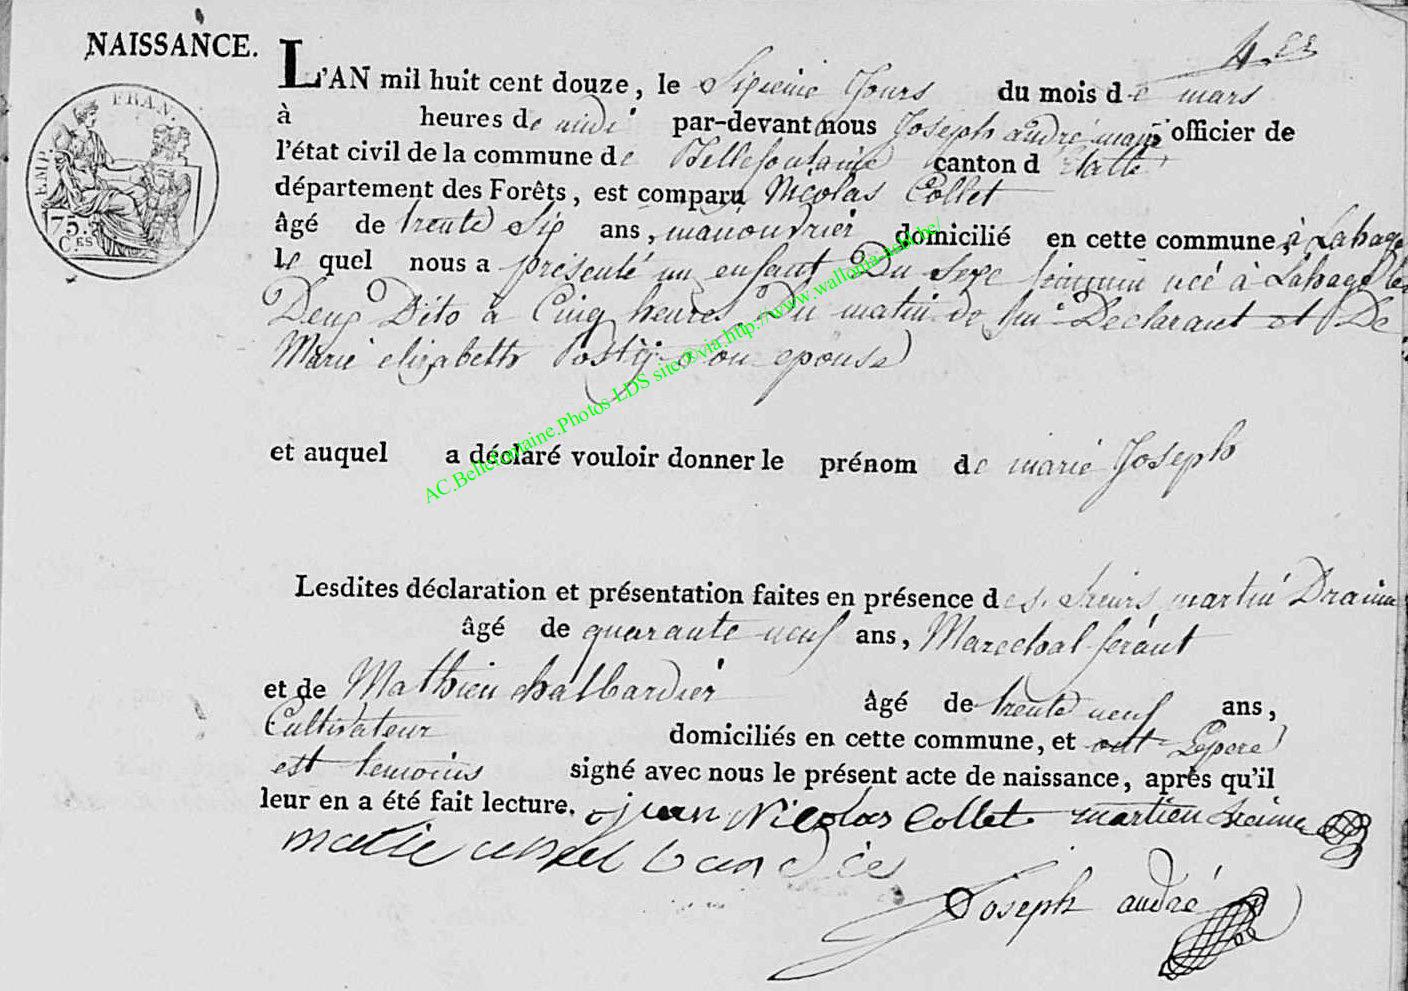 NAISSANCE.
4.ee
L'AN mil huit cent douze, le Sixieme Jours du mois de mars
FRAN. EMP.
75. C.ES
à heures de midi par-devant nous Joseph andré maire officier de
l'état civil de la commune de Bellefontaine canton d'Etalle
département des Forêts, est comparu Nicolas Collet
âgé de trente Six ans, manouvrier domicilié en cette commune à Lahage
le quel nous a présenté un enfant Du Sexe feminin née à Lahage le
Deux Dito à Cinq heures Du matin de lui Declarant et De
Marie elizabeth Son epouse
et auquel a déclaré vouloir donner le prénom de marie Joseph
Lesdites déclaration et présentation faites en présence des. Sieurs martin Draime
âgé de quarante neuf ans, Marechal ferant
et de Mathieu halbardier âgé de trente neuf ans,
Cultivateur domiciliés en cette commune, et ont Lepere
est temoins signé avec nous le présent acte de naissance, après qu'il
leur en a été fait lecture. jean Nicolas Collet martien
Joseph andré
AC.Bellefontaine.Photos LDS site.©via.http://www.wallonia-asbl.be/